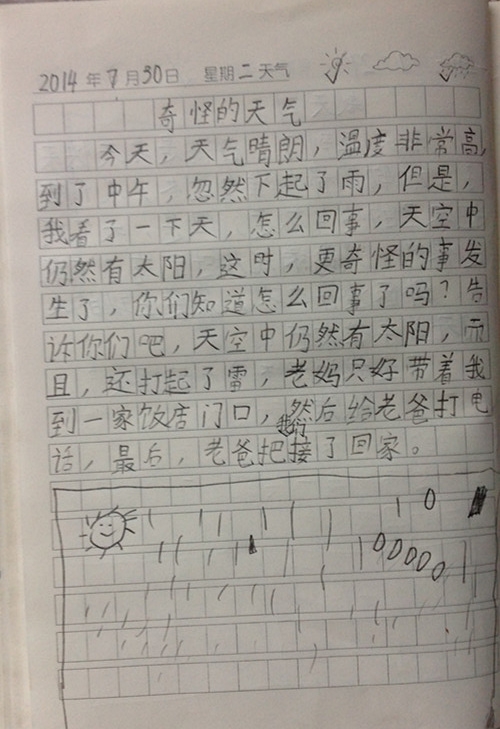 2014年7月30日 星期二天气
奇怪的天气
今天，天气晴朗，温度非常高，
到了中午，忽然下起了雨，但是，
我看了一下天，怎么回事，天空中
仍然有太阳，这时，更奇怪的事发
生了，你们知道怎么回事了吗？告
诉你们吧，天空中仍然有太阳，而
且，还打起了雷，老妈只好带着我
到一家饭店门口，然后给老爸打电
话，最后，老爸把我们接了回家。